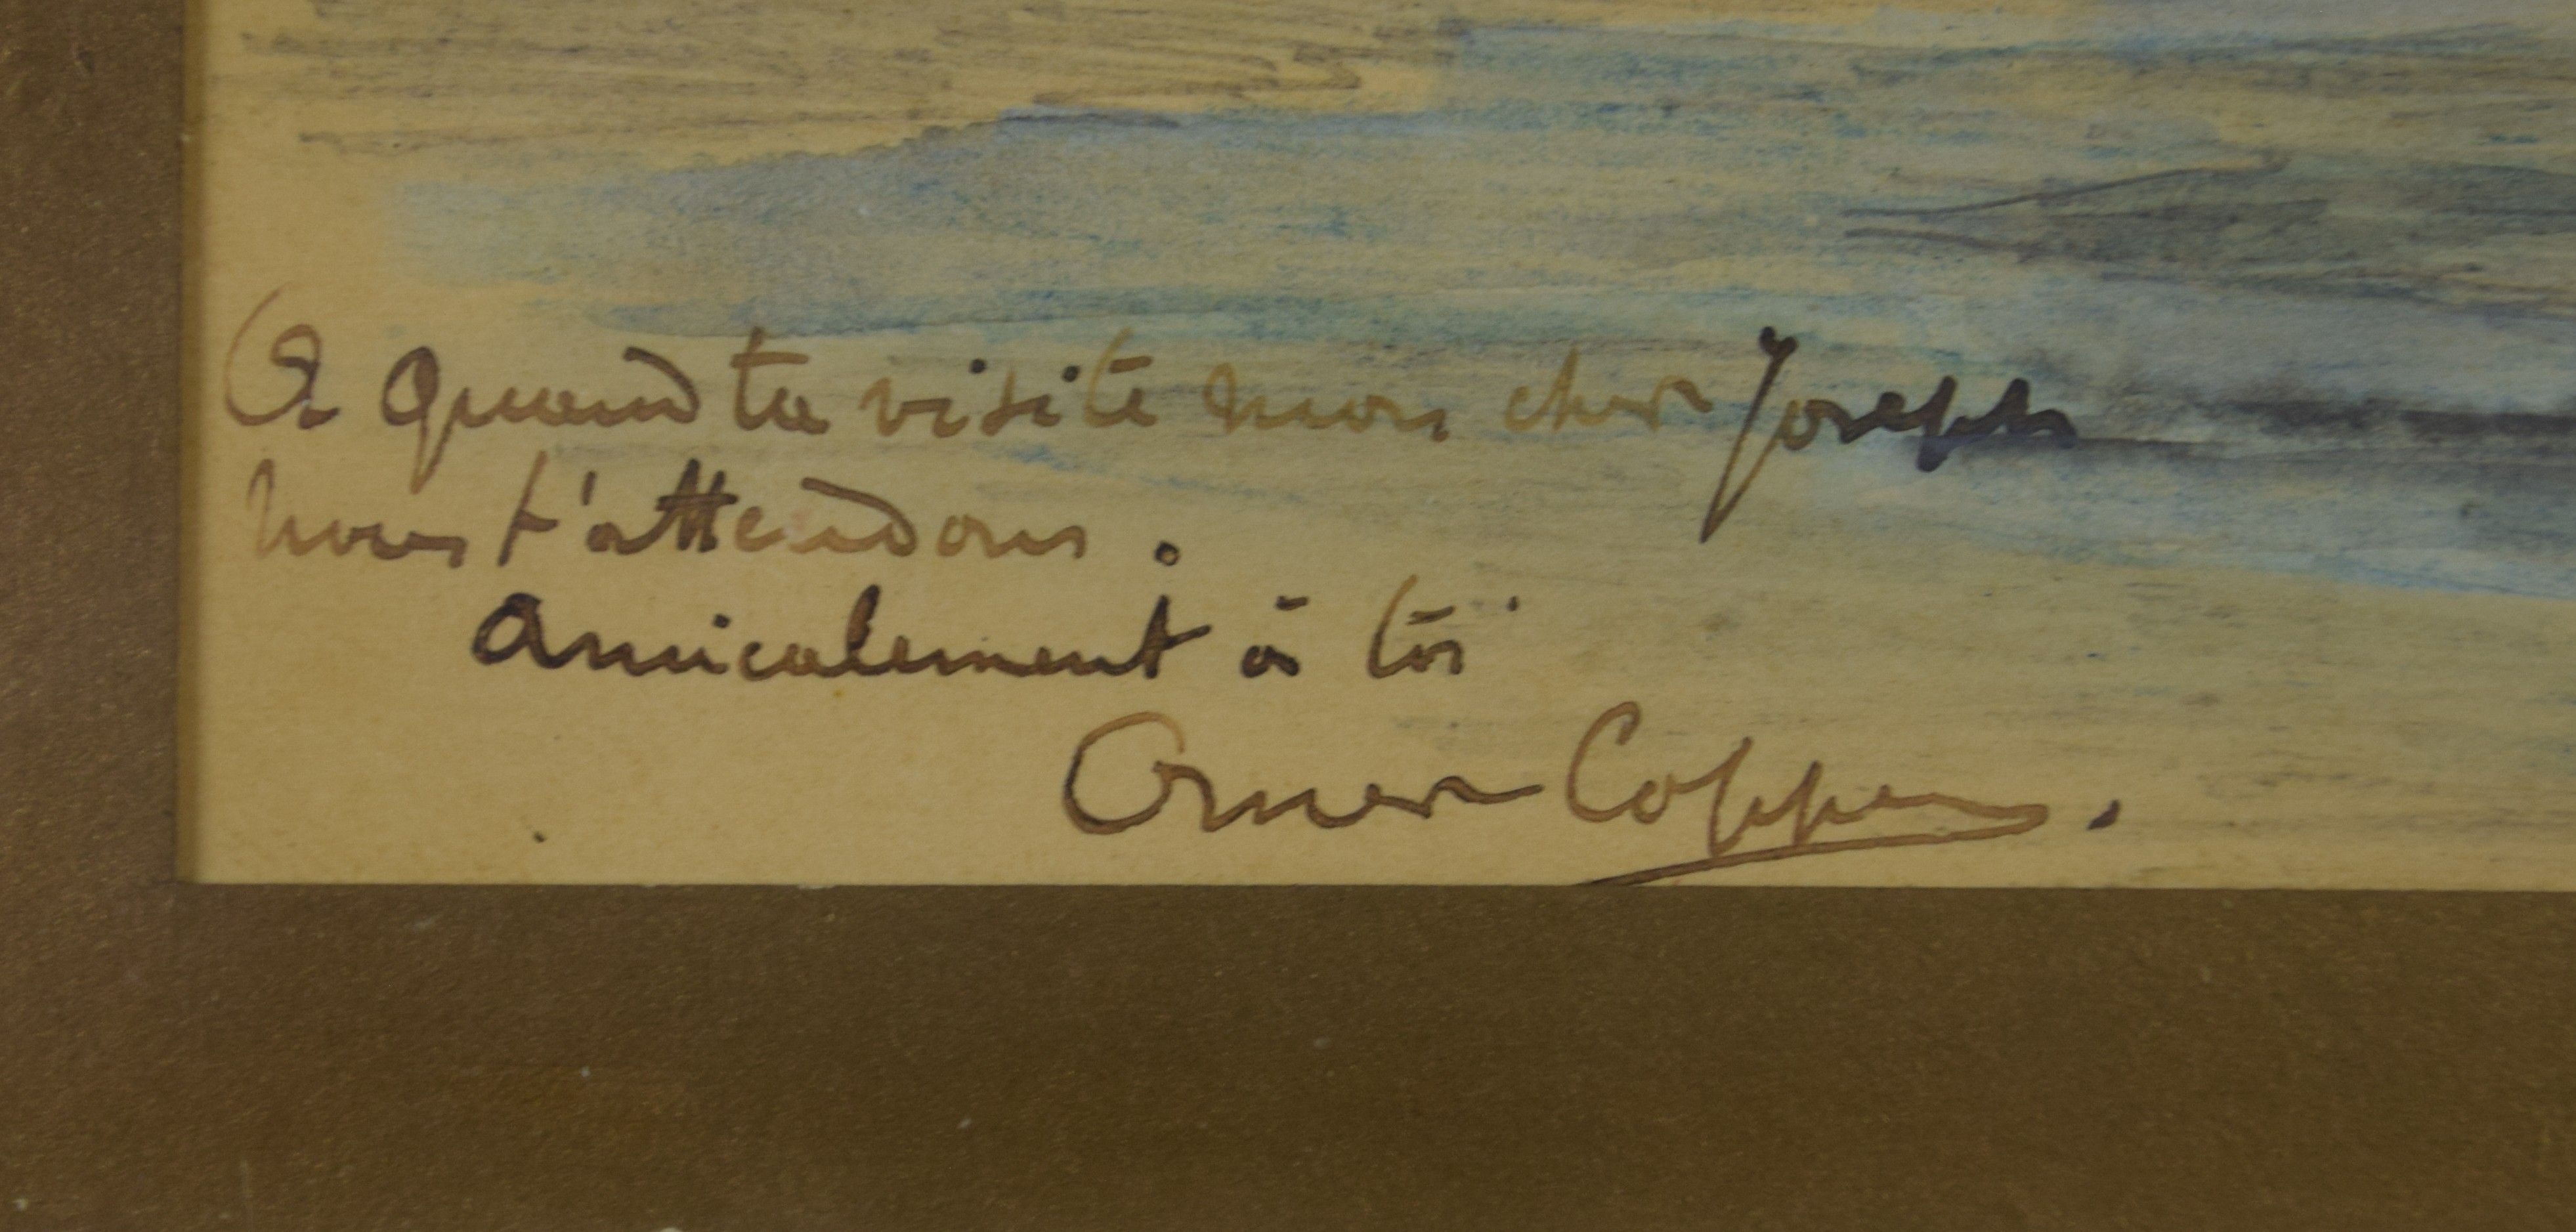 A quand ta visite mon cher Joseph
nous t'attendons.
Amicalement à toi
Omer Coppens.